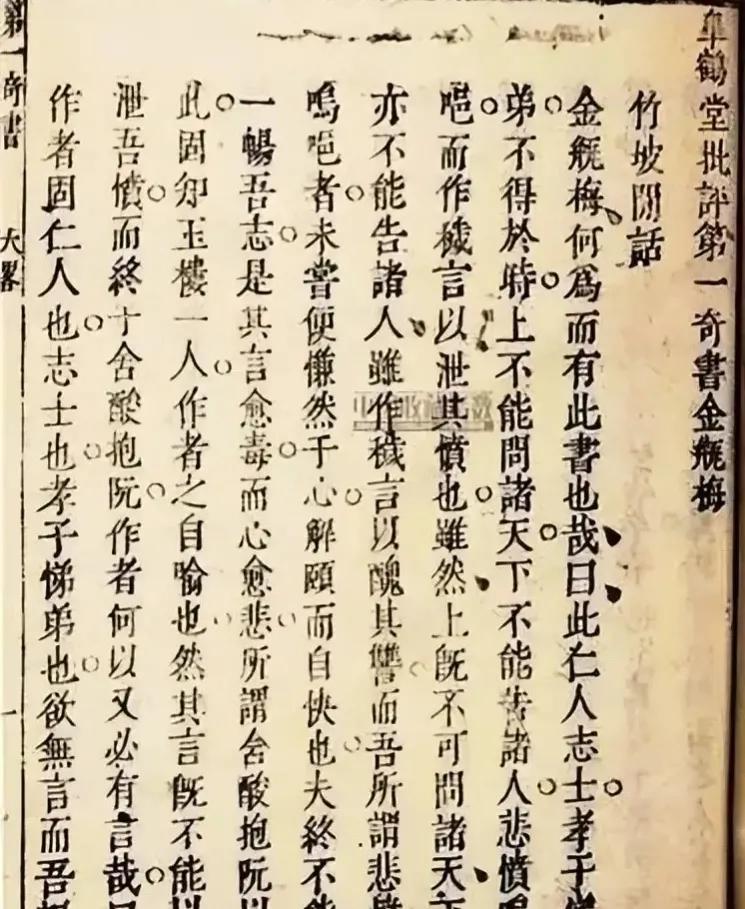 皐鶴堂批評第一奇書金瓶梅
竹坡閒話
金瓶梅何爲而有此書也哉曰此仁人志士孝子
弟不得於時上不能問諸天下不能告諸人悲憤嗚
唈而作穢言以泄其憤也雖然上既不可問諸天下
亦不能告諸人雖作穢言以醜其讐而吾所謂悲憤
嗚唈者未嘗便慊然于心解頤而自快也夫終不能
一暢吾志是其言愈毒而心愈悲所謂含酸抱阮以
此固知玉樓一人作者之自喻也然其言既不能以
泄吾憤而終于含酸抱阮作者何以又必有言哉曰
作者固仁人也志士也孝子悌弟也欲無言而吾
第一奇書
大畧
一